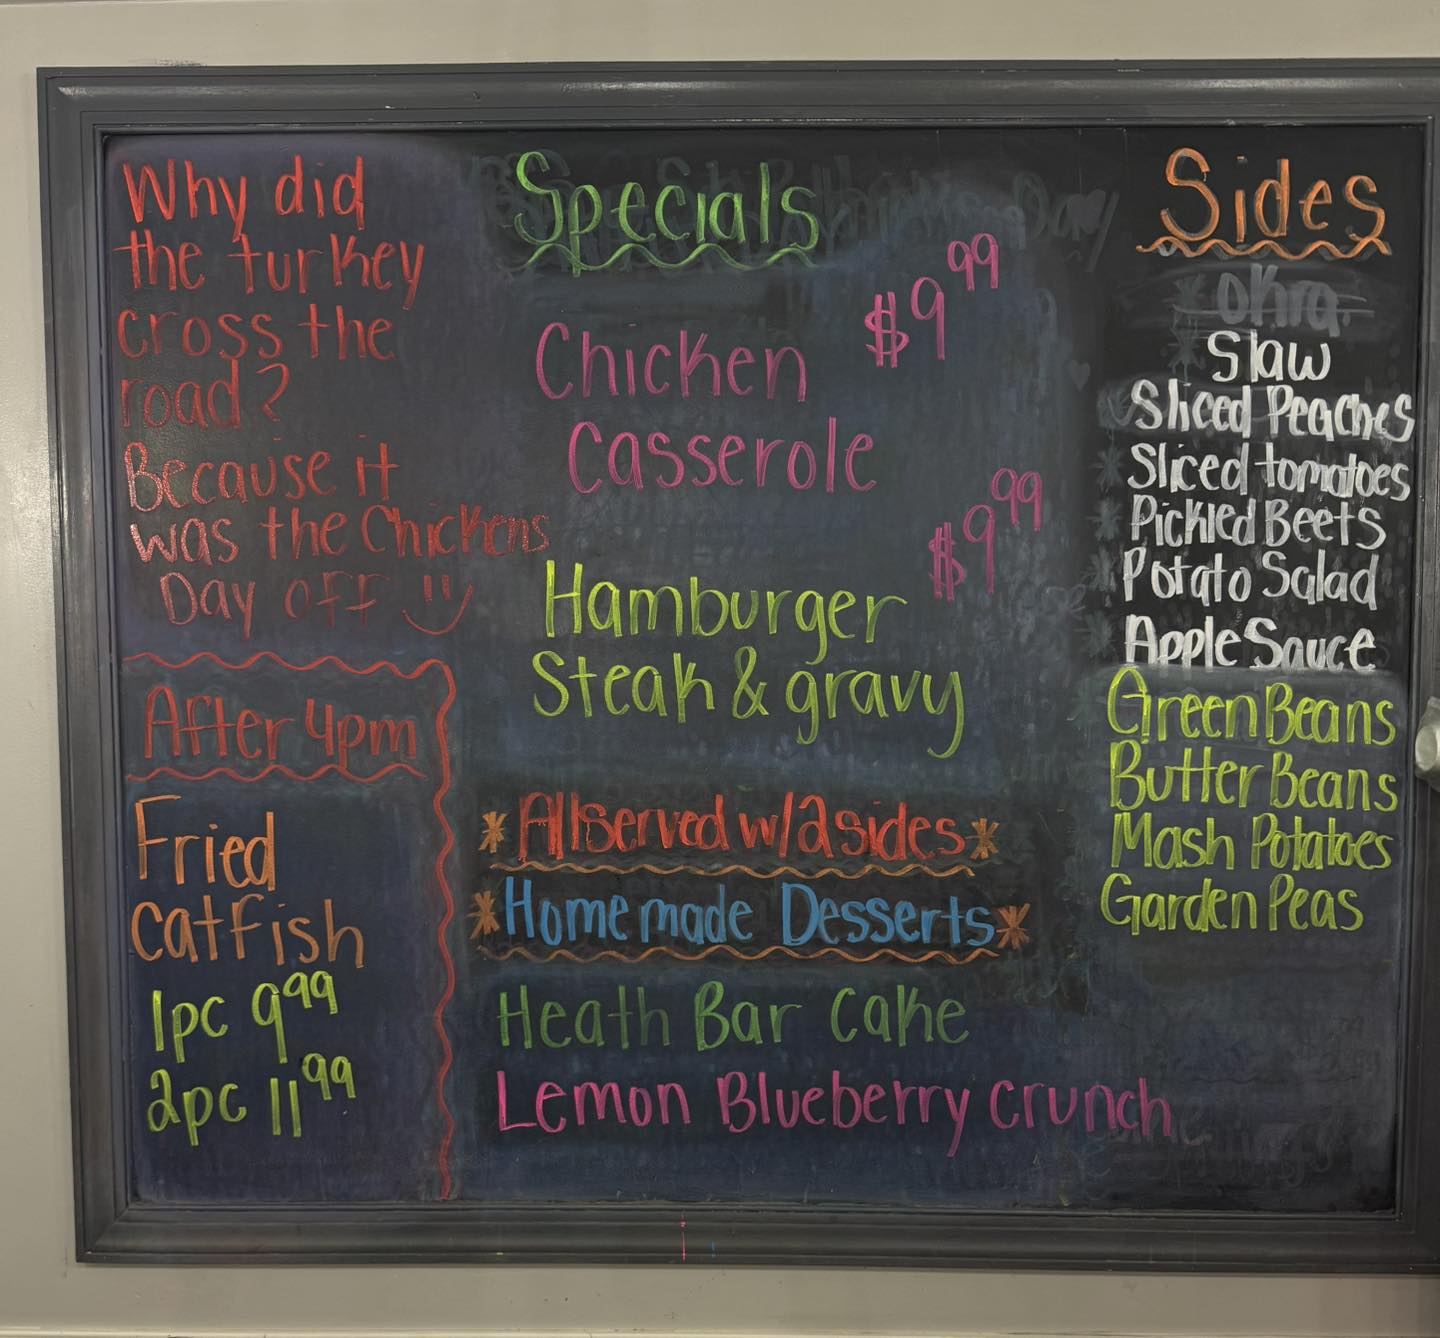 Why did
the turkey
cross the
road?
Because it
was the Chickens
Day off
After 4pm
Fried
catfish
1pc 9.99
2pc 11.99
Specials
$9.99
Chicken
Casserole
$9.99
Hamburger
Steak & gravy
*All served w/2 sides*
*Homemade Desserts*
Heath Bar Cake
Lemon Blueberry crunch
Sides
okra
Slaw
Sliced Peaches
Sliced tomatoes
Pickled Beets
Potato Salad
Apple Sauce
Green Beans
Butter Beans
Mash Potatoes
Garden Peas